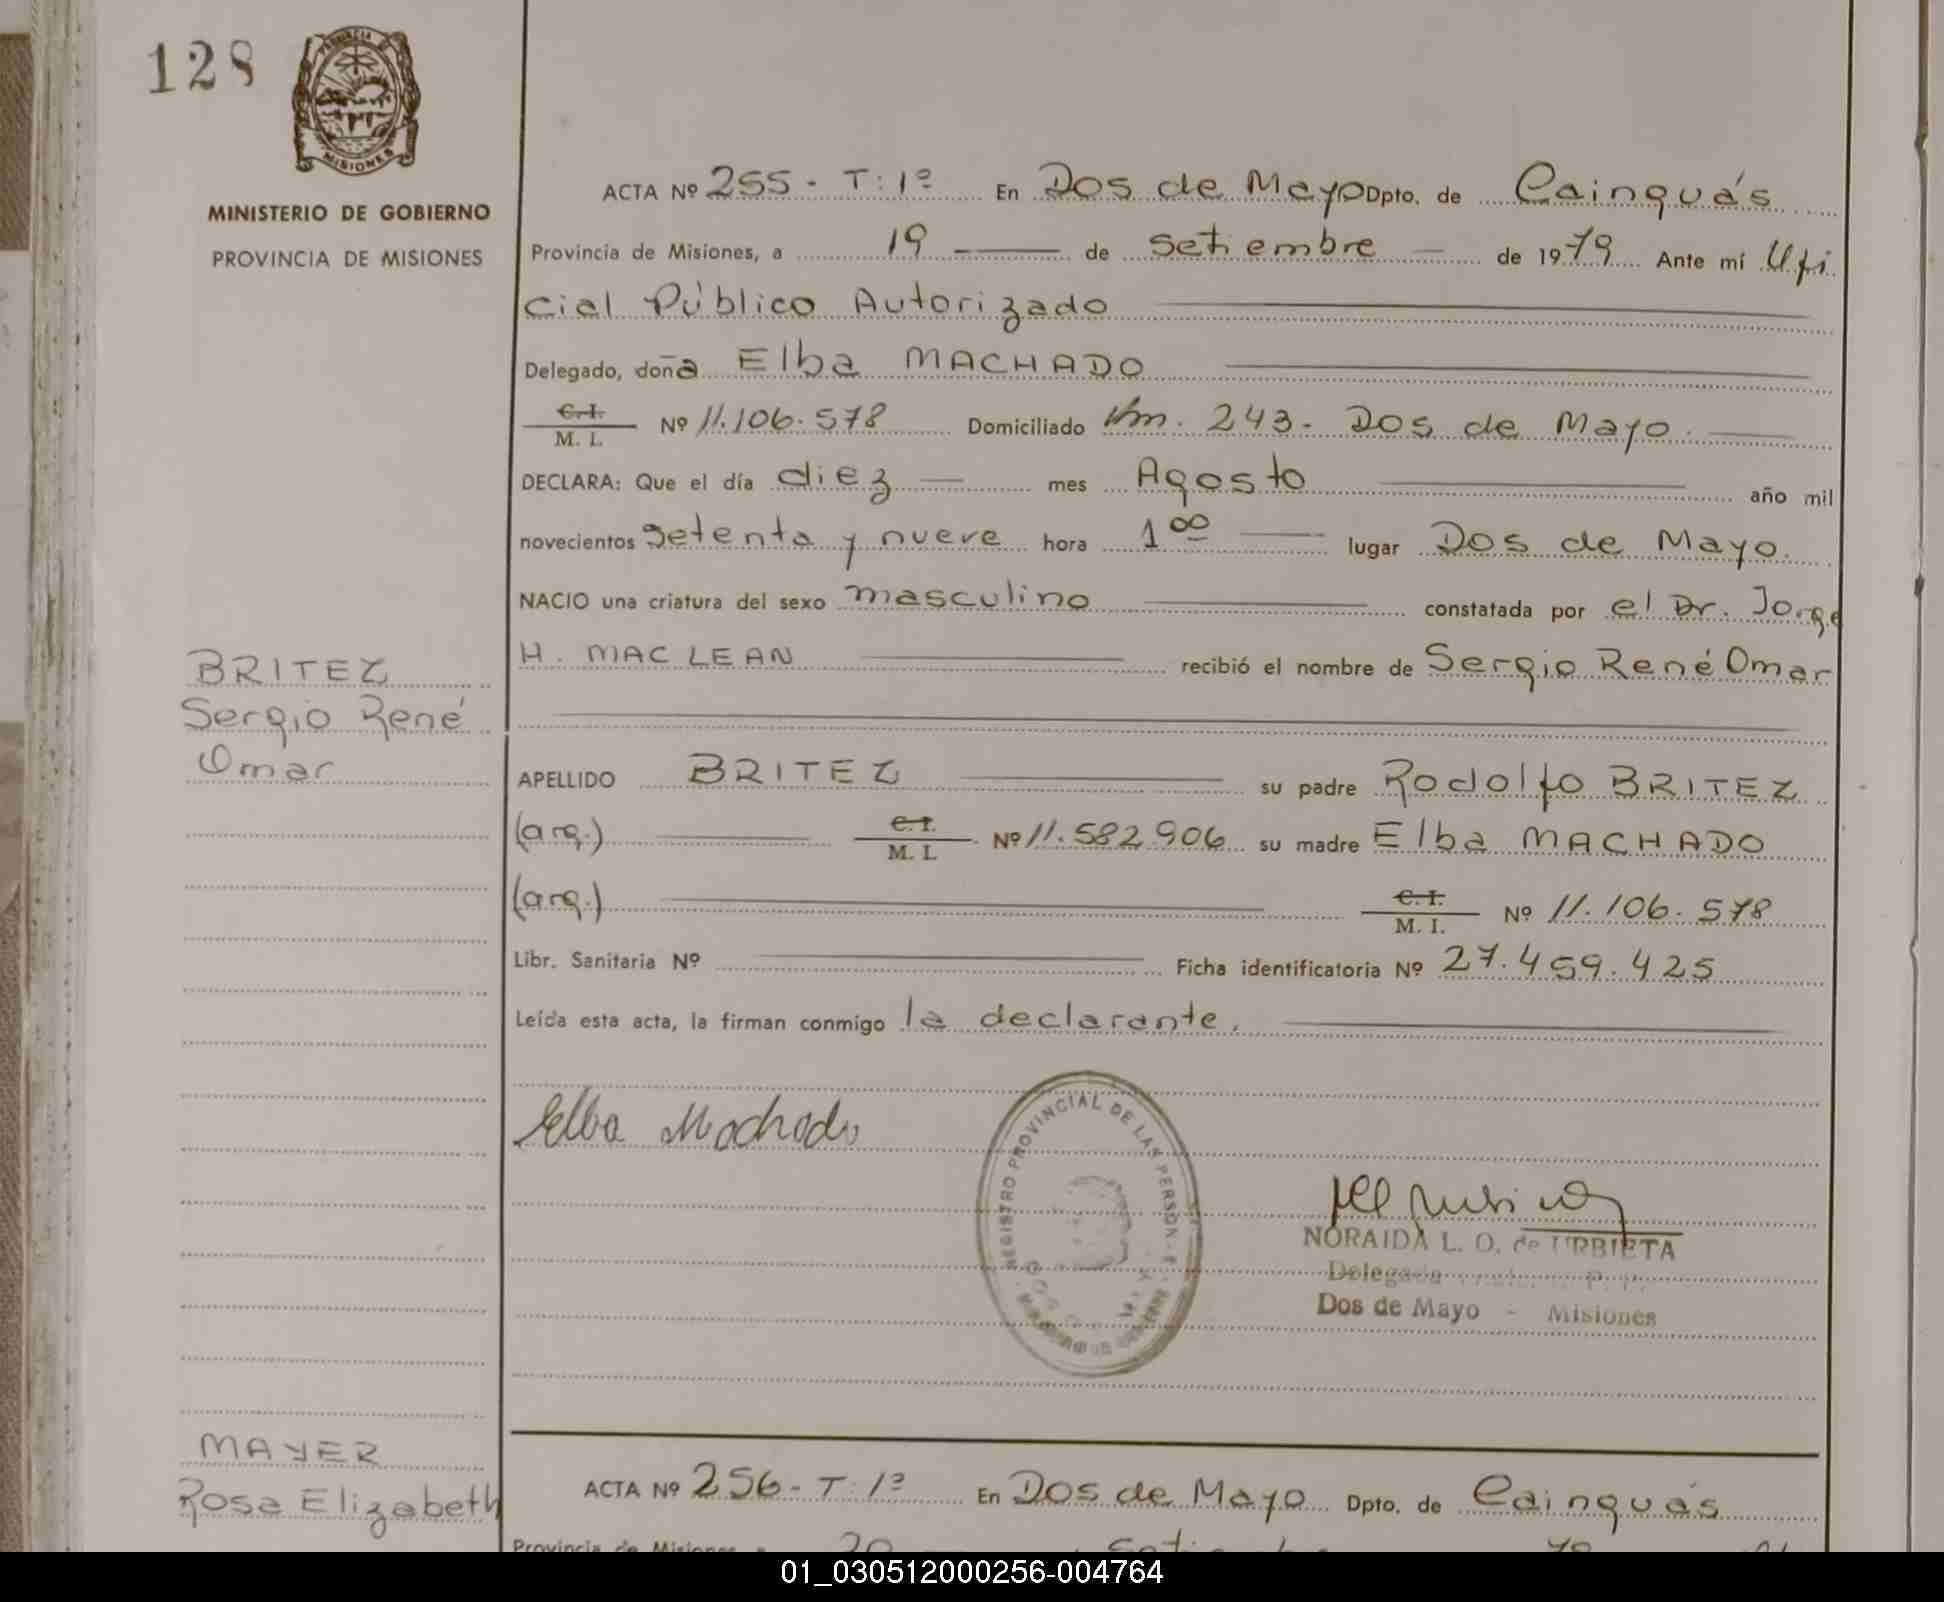 128
PROVINCIA DE
MISIONES
MINISTERIO DE GOBIERNO
PROVINCIA DE MISIONES
ACTA Nº 255 - T: 1º En Dos de Mayo Dpto. de Cainguás
Provincia de Misiones, a 19 de Setiembre de 1979 Ante mí Ofi
cial Público Autorizado
Delegado, doña Elba MACHADO
C.I.
M. I. Nº 11.106.578 Domiciliado Km. 243 - Dos de Mayo.
DECLARA: Que el día diez mes Agosto año mil
novecientos setenta y nueve hora 1 00 lugar Dos de Mayo.
NACIO una criatura del sexo masculino constatada por el Dr. Jorge
H. MAC LEAN recibió el nombre de Sergio René Omar
BRITEZ
Sergio René
Omar
APELLIDO BRITEZ su padre Rodolfo BRITEZ
(arg.) C.I.
M. I. Nº 11.582.906 su madre Elba MACHADO
(arg.) C.I.
M. I. Nº 11.106.578
Libr. Sanitaria Nº Ficha identificatoria Nº 27.459.425
Leída esta acta, la firman conmigo la declarante.
Elba Machado
REGISTRO PROVINCIAL DE LAS PERSON
NORAIDA L. O. de URBIETA
Delegada
Dos de Mayo - Misiones
MAYER
Rosa Elizabeth
ACTA Nº 256 - T: 1º En Dos de Mayo Dpto. de Cainguás
Provincia de Misiones, a 20 Setiembre 79
01_030512000256-004764